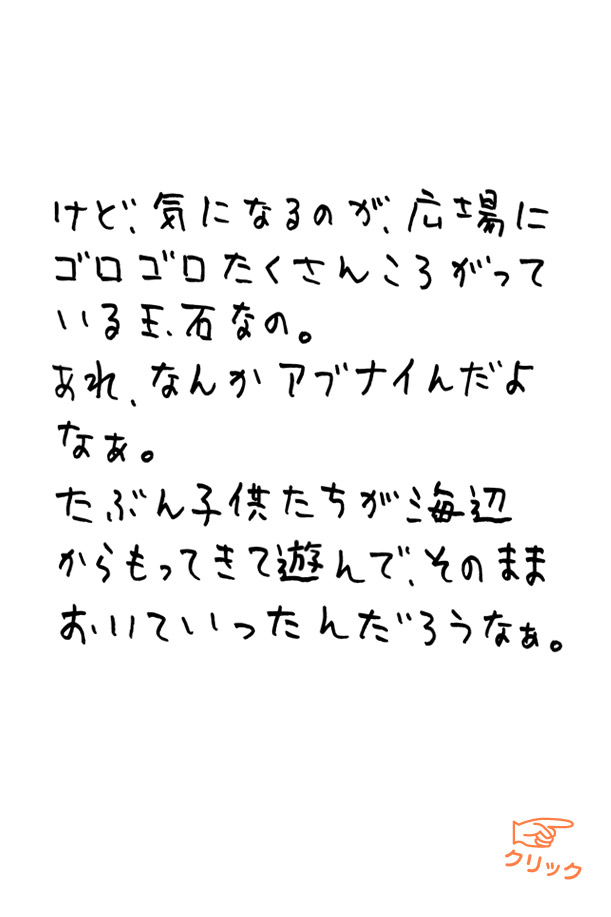 けど、気になるのが、広場に
ゴロゴロたくさんころがって
いる玉石なの。
あれ、なんかアブナイんだよ
なぁ。
たぶん子供たちが海辺
からもってきて遊んで、そのまま
おいていったんだろうなぁ。
クリック